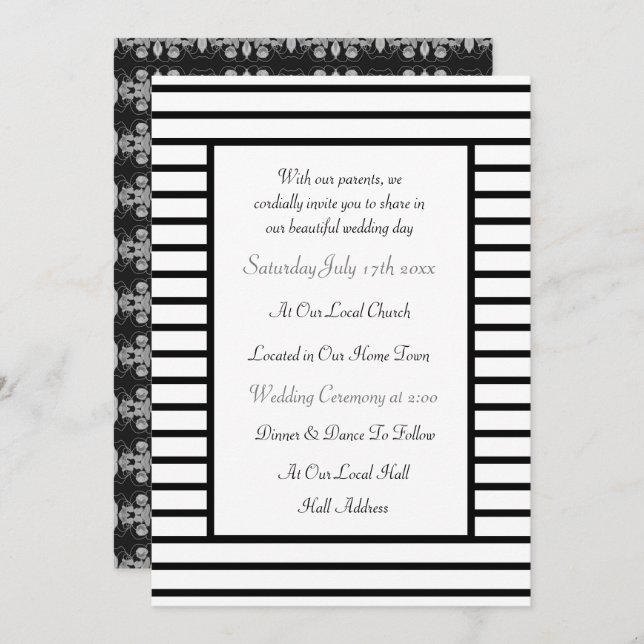 With our parents, we
cordially invite you to share in
our beautiful wedding day
Saturday July 17th 20xx
At Our Local Church
Located in Our Home Town
Wedding Ceremony at 2:00
Dinner & Dance To Follow
At Our Local Hall
Hall Address